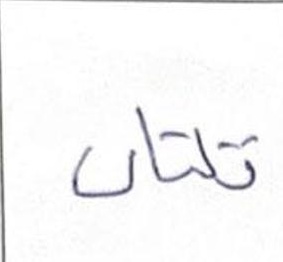 تلتان